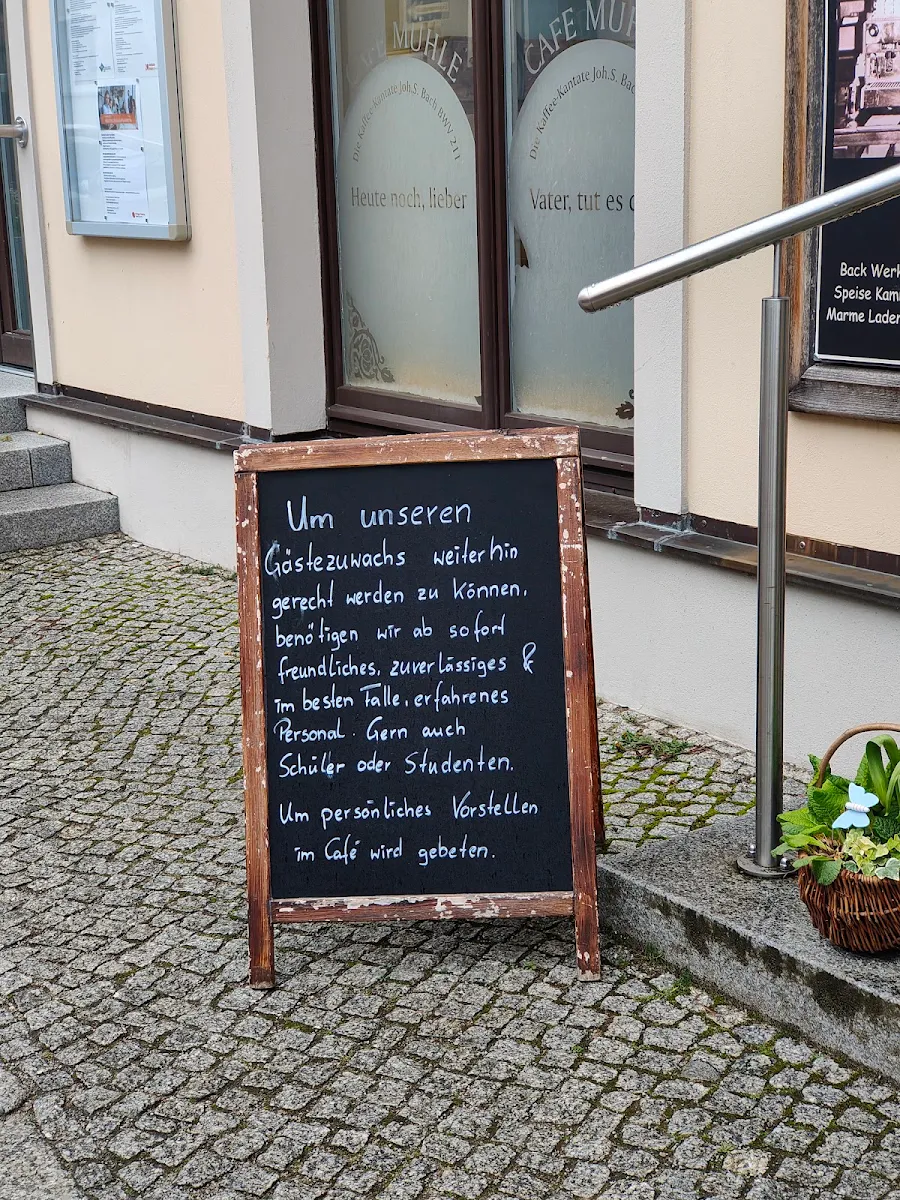 CAFE MÜHLE
Die Kaffee-Kantate Joh.S. Bach BWV 211
Heute noch, lieber
CAFE MÜH
Die Kaffee-Kantate Joh.S. Bac
Vater, tut es d
Back Werk
Speise Kam
Marme Laden
Um unseren
Gästezuwachs weiterhin
gerecht werden zu können,
benötigen wir ab sofort
freundliches, zuverlässiges &
im besten Falle, erfahrenes
Personal. Gern auch
Schüler oder Studenten.
Um persönliches Vorstellen
im Café wird gebeten.